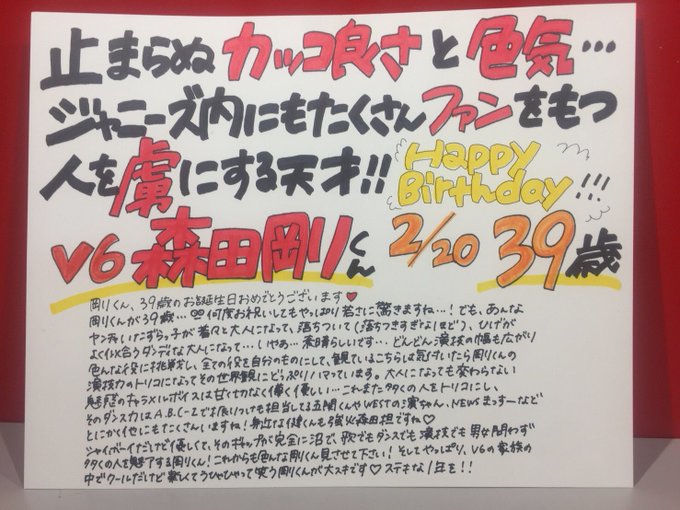 止まらぬカッコ良さと色気…
ジャニーズ内にもたくさんファンをもつ
人を虜にする天才!!
Happy
Birthday!!!
V6 森田剛くん 2/20 39歳
剛くん、39歳のお誕生日おめでとうございます♥
剛くんが39歳…何度お祝いしてもやっぱり若さに驚きますね…!でも、あんな
ヤンチャいたずらっ子が着々と大人になって、落ちついて(落ちつきすぎなほど)、ひげが
よく似合うダンディな大人になって…いやぁ…素晴らしいです…どんどん演技の幅も広がり
色んな役に挑戦し、全ての役を自分のものにして、観ているこちらは気付いたら剛くんの
演技力のトリコになってその世界観にどっぷりハマっています。大人になっても変わらない
魅惑のキャラメルボイスは甘く切なく儚く優しい…これまた多くの人をトリコにし、
そのダンス力はA.B.C-Zで振りつけも担当してる五関くんやWESTの濵ちゃん、NEWSまっすーなど
とにかく他にもたくさんいますね!身近な健くんも強火森田担ですね♡
シャイボーイだけど優しくて、そのギャップが完全に沼で、歌でもダンスでも演技でも男女問わず
多くの人を魅了する剛くん!これからも色んな剛くん見させて下さい!そしてやっぱり、V6の家族の
中でクールだけど楽しくてうひゃひゃって笑う剛くんが大スキです♡ステキな1年を!!